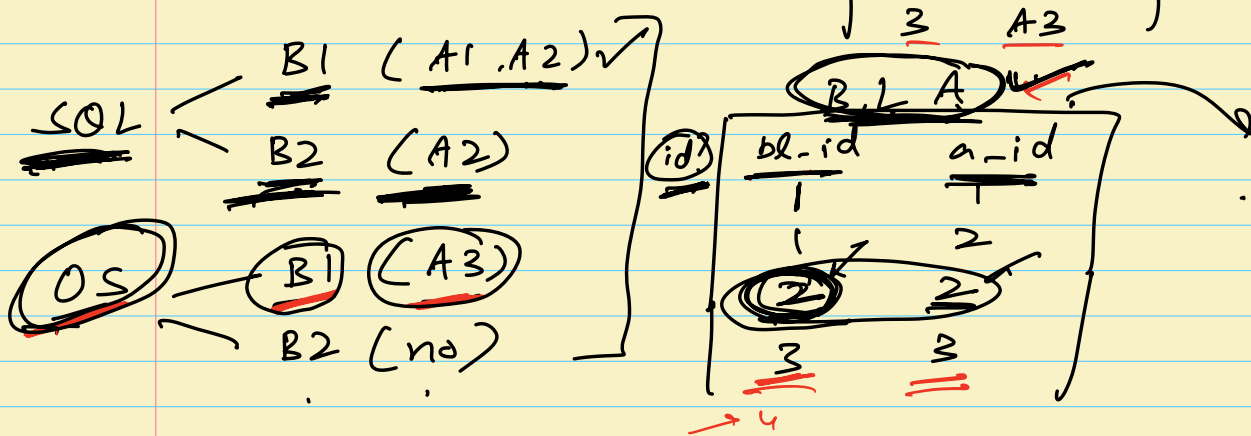 SQL
B1 (A1, A2)
B2 (A2)
OS
B1 (A3)
B2 (no)
3 A3
B L A
id bl_id a_id
1 1
1 2
2 2
3 3
4